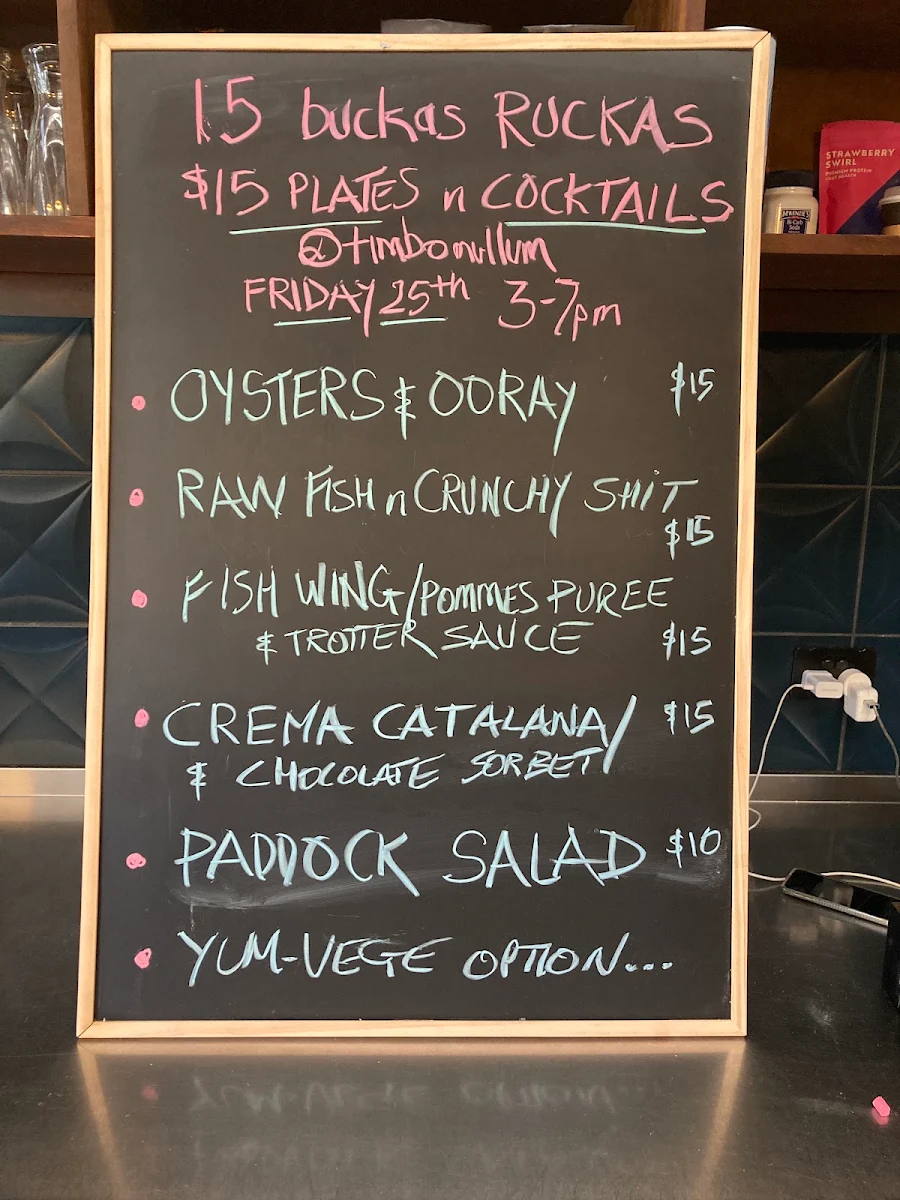 15 buckas RUCKAS
$15 PLATES n COCKTAILS
@timbonullum
FRIDAY 25th 3-7pm
OYSTERS & OORAY $15
RAW FISH n CRUNCHY SHIT
$15
FISH WING/POMMES PUREE
& TROTTER SAUCE $15
CREMA CATALANA/ $15
& CHOCOLATE SORBET
PADDOCK SALAD $10
YUM-VEGE OPTION...
STRAWBERRY
SWIRL
PREMIUM PROTEIN
McKENZIE'S
Bi-Carb
Soda